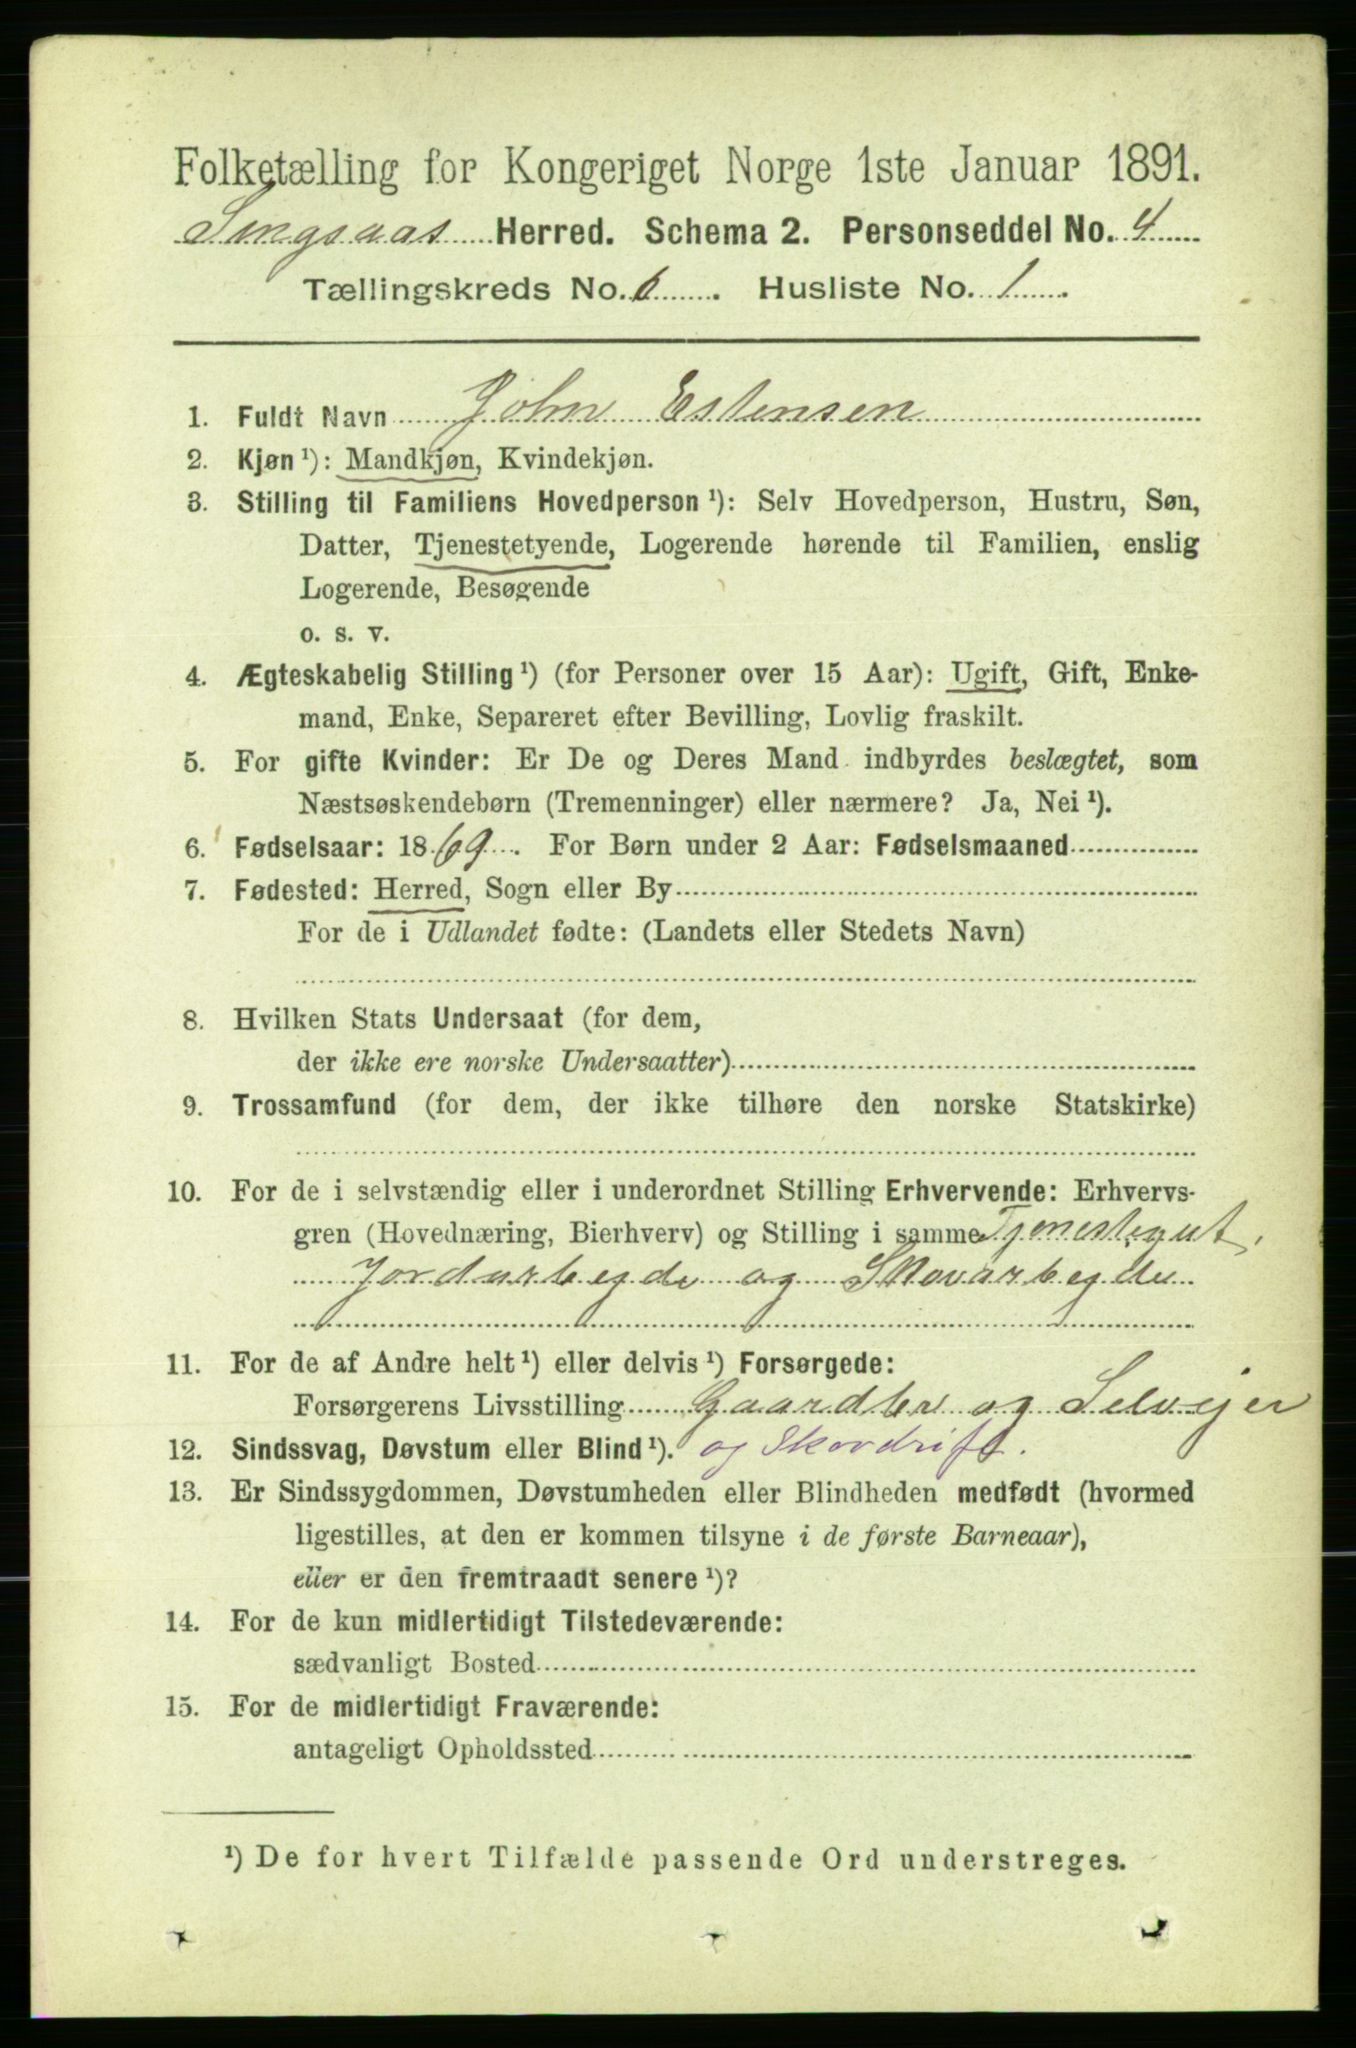 Folketælling for Kongeriget Norge 1ste Januar 1891.
Singsaas Herred. Schema 2. Personseddel No. 4
Tællingskreds No. 6. Husliste No. 1.
1. Fuldt Navn John Estensen
2. Kjøn ¹): Mandkjøn, Kvindekjøn.
3. Stilling til Familiens Hovedperson ¹): Selv Hovedperson, Hustru, Søn,
Datter, Tjenestetyende, Logerende hørende til Familien, enslig
Logerende, Besøgende
o. s. v.
4. Ægteskabelig Stilling ¹) (for Personer over 15 Aar): Ugift, Gift, Enke-
mand, Enke, Separeret efter Bevilling, Lovlig fraskilt.
5. For gifte Kvinder: Er De og Deres Mand indbyrdes beslægtet, som
Næstsøskendebørn (Tremenninger) eller nærmere? Ja, Nei ¹).
6. Fødselsaar: 1869. For Børn under 2 Aar: Fødselsmaaned
7. Fødested: Herred, Sogn eller By
For de i Udlandet fødte: (Landets eller Stedets Navn)
8. Hvilken Stats Undersaat (for dem,
der ikke ere norske Undersaatter)
9. Trossamfund (for dem, der ikke tilhøre den norske Statskirke)
10. For de i selvstændig eller i underordnet Stilling Erhvervende: Erhvervs-
gren (Hovednæring, Bierhverv) og Stilling i samme Tjenestegut,
Jordarbejde og Skovarbejde
11. For de af Andre helt ¹) eller delvis ¹) Forsørgede:
Forsørgerens Livsstilling Gaardbr og Selvejer
12. Sindssvag, Døvstum eller Blind ¹). og Skovdrift.
13. Er Sindssygdommen, Døvstumheden eller Blindheden medfødt (hvormed
ligestilles, at den er kommen tilsyne i de første Barneaar),
eller er den fremtraadt senere ¹)?
14. For de kun midlertidigt Tilstedeværende:
sædvanligt Bosted
15. For de midlertidigt Fraværende:
antageligt Opholdssted
¹) De for hvert Tilfælde passende Ord understreges.